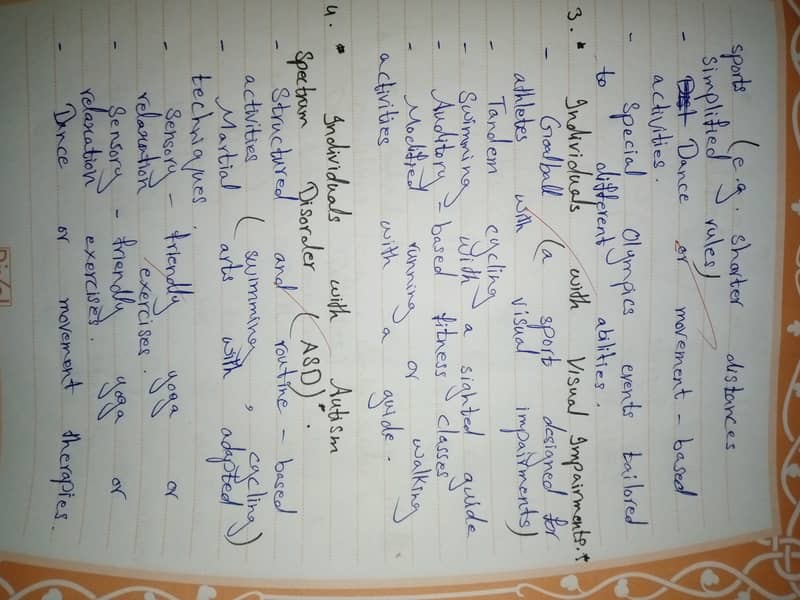 sports (e.g. shorter distances
simplified rules)
- Dance or movement - based
activities.
- Special Olympics events tailored
to different abilities.
3. * Individuals with Visual Impairments.*
- Goalball (a sport designed for
athletes with visual impairments)
- Tandem cycling
- Swimming with a sighted guide
- Auditory - based fitness classes
- Modified running or walking
activities with a guide.
4. * Individuals with Autism
Spectrum Disorder (ASD)*.
- Structured and routine - based
activities (swimming, cycling)
- Martial arts with adapted
techniques.
- Sensory - friendly yoga or
relaxation exercises.
- Sensory - friendly yoga or
relaxation exercises.
- Dance or movement therapies.